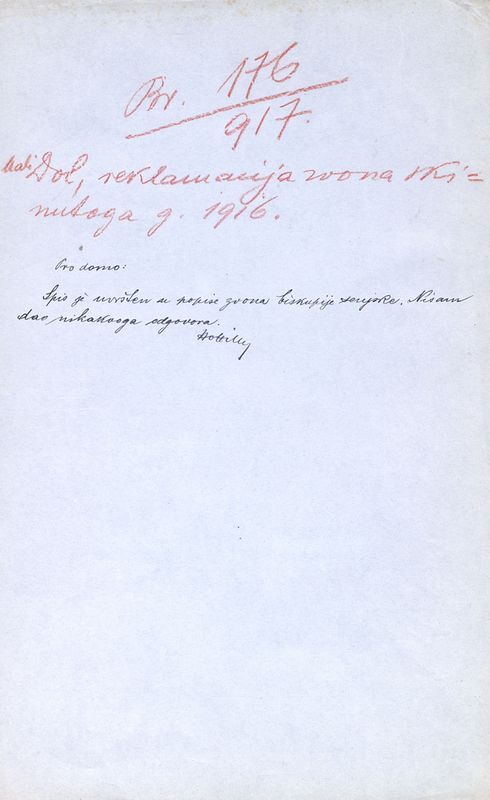 Br. 176
917.
Mali Dol, reklamacija zvona ski=
nutoga g. 1916.
Pro domo:
Spis je uvršten u popise zvona biskupije senjske. Nisam
dao nikakvoga odgovora.